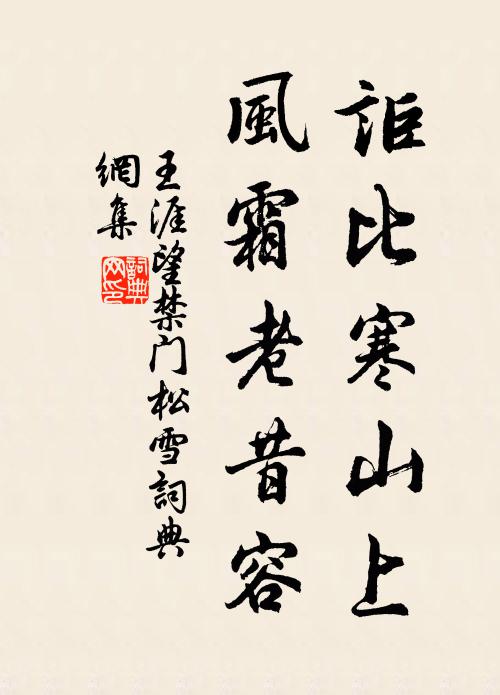 詎比寒山上
風霜老昔容
王涯望禁门松雪詞典
網集
詞典
网印